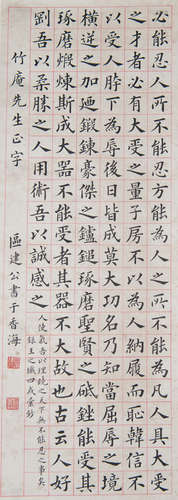 必能忍人所不能忍方能為人所不能為凡人具大受
之才者必有大受之量子房不以為人納履而恥韓信不
以受人胯下為辱後日皆成莫大功名乃知當屈辱之境
橫逆之加迺鍛鍊豪傑之鑪鎚琢磨聖賢之砥銼能受其
琢磨煅煉斯成大器不能受者其器不大故也古云人好
剛吾以柔勝之人用術吾以誠感之
人使氣吾以理曉之天下無不能忍之事矣
竹庵先生正字
區建公書于香海